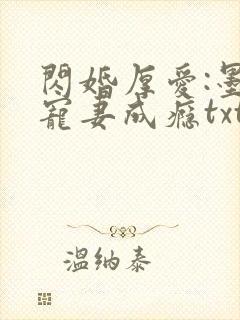 閃婚厚愛:墨
寵妻成癮txt
溫納泰